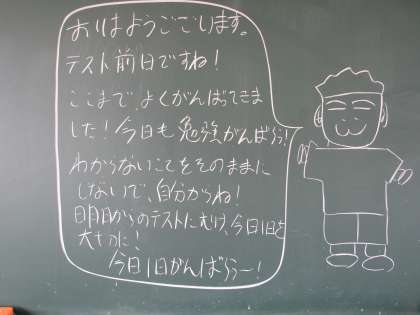 おはようございます。
テスト前日ですね!
ここまで、よくがんばてきま
した!今日も勉強がんばろう!
わからないことをそのままに
しないで、自分からね!
明日からのテストにむけ、今日1日を
大切に!
今日1日がんばろうー!